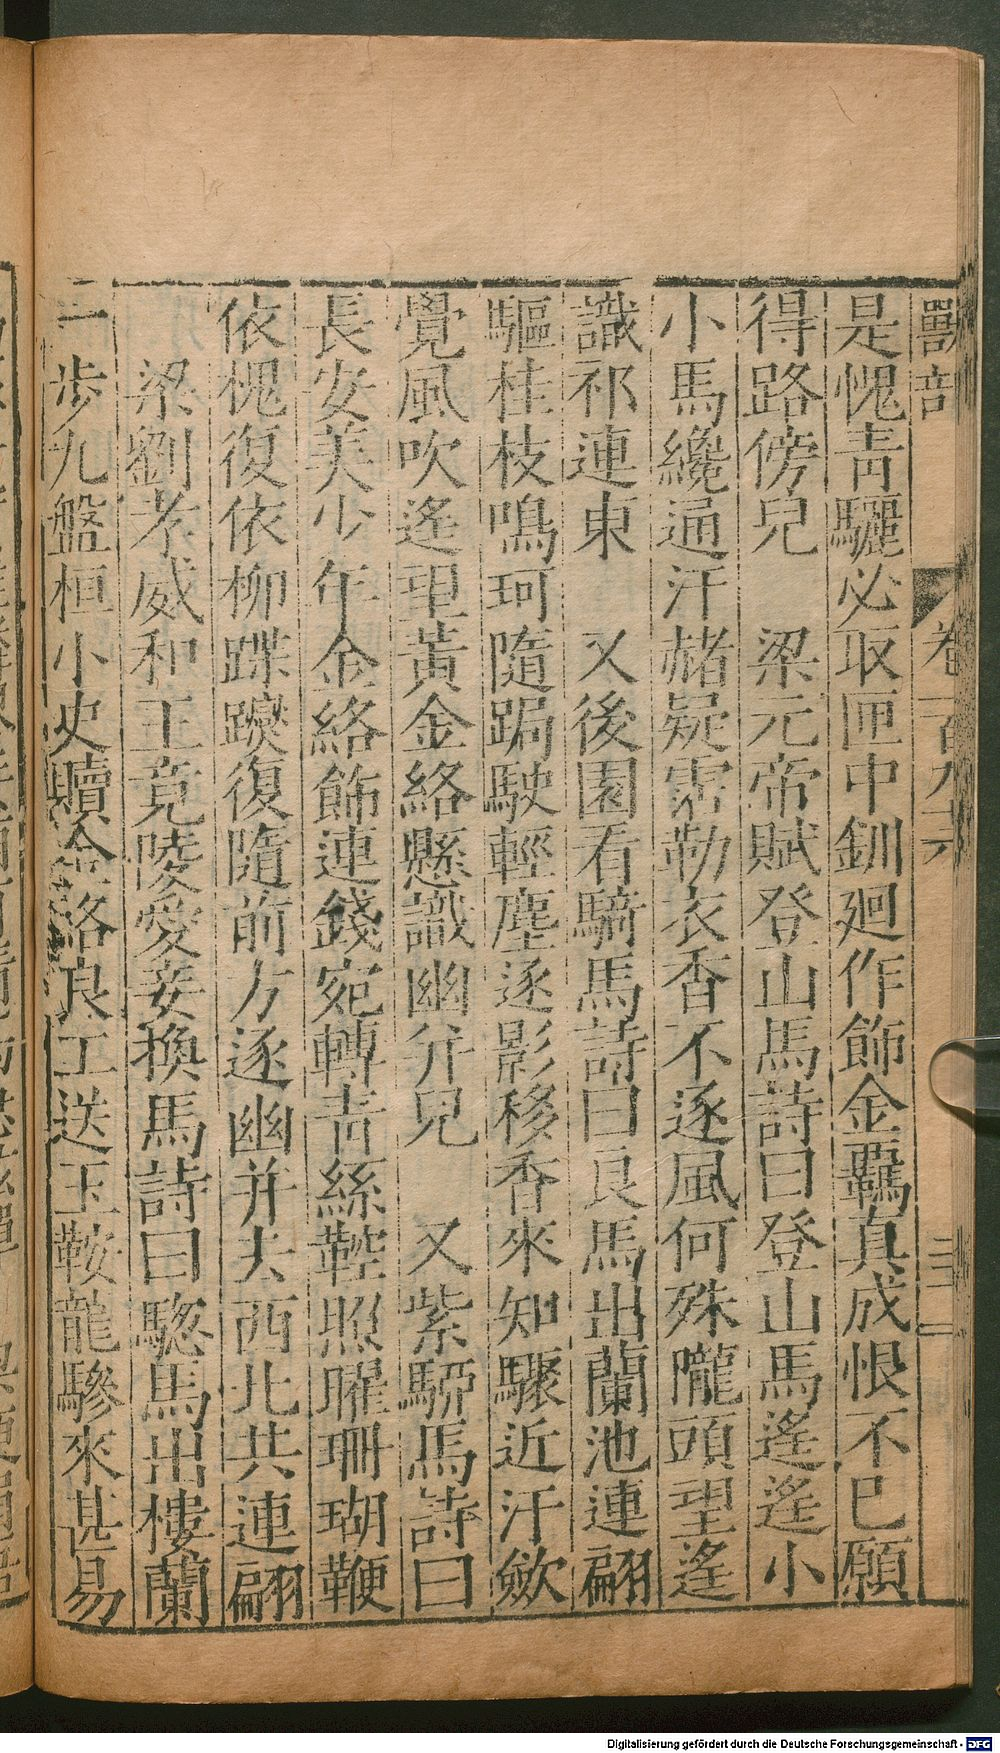 獸部 卷一百九十六 三二
是愧靑驪必取匣中釧廻作飾金羈真成恨不已願
得路傍兒 梁元帝賦登山馬詩曰登山馬遙遙小
小馬纔通汗赭疑霑勒衣香不逐風何殊隴頭望遙
識祁連東 又後園看騎馬詩曰良馬出蘭池連翩
驅桂枝鳴珂隨跼駛輕塵逐影移香來知驟近汗斂
覺風吹遙望黃金絡懸識幽并兒 又紫騮馬詩曰
長安美少年金絡飾連錢宛轉青絲鞚照曜珊瑚鞭
依槐復依柳蹀躞復隨前方逐幽并去西北共連翩
梁劉孝威和王竟陵愛妾換馬詩曰驄馬出樓蘭
一步九盤桓小史贖金絡良工送玉鞍龍驂來甚易
Digitalisierung gefördert durch die Deutsche Forschungsgemeinschaft - DFG